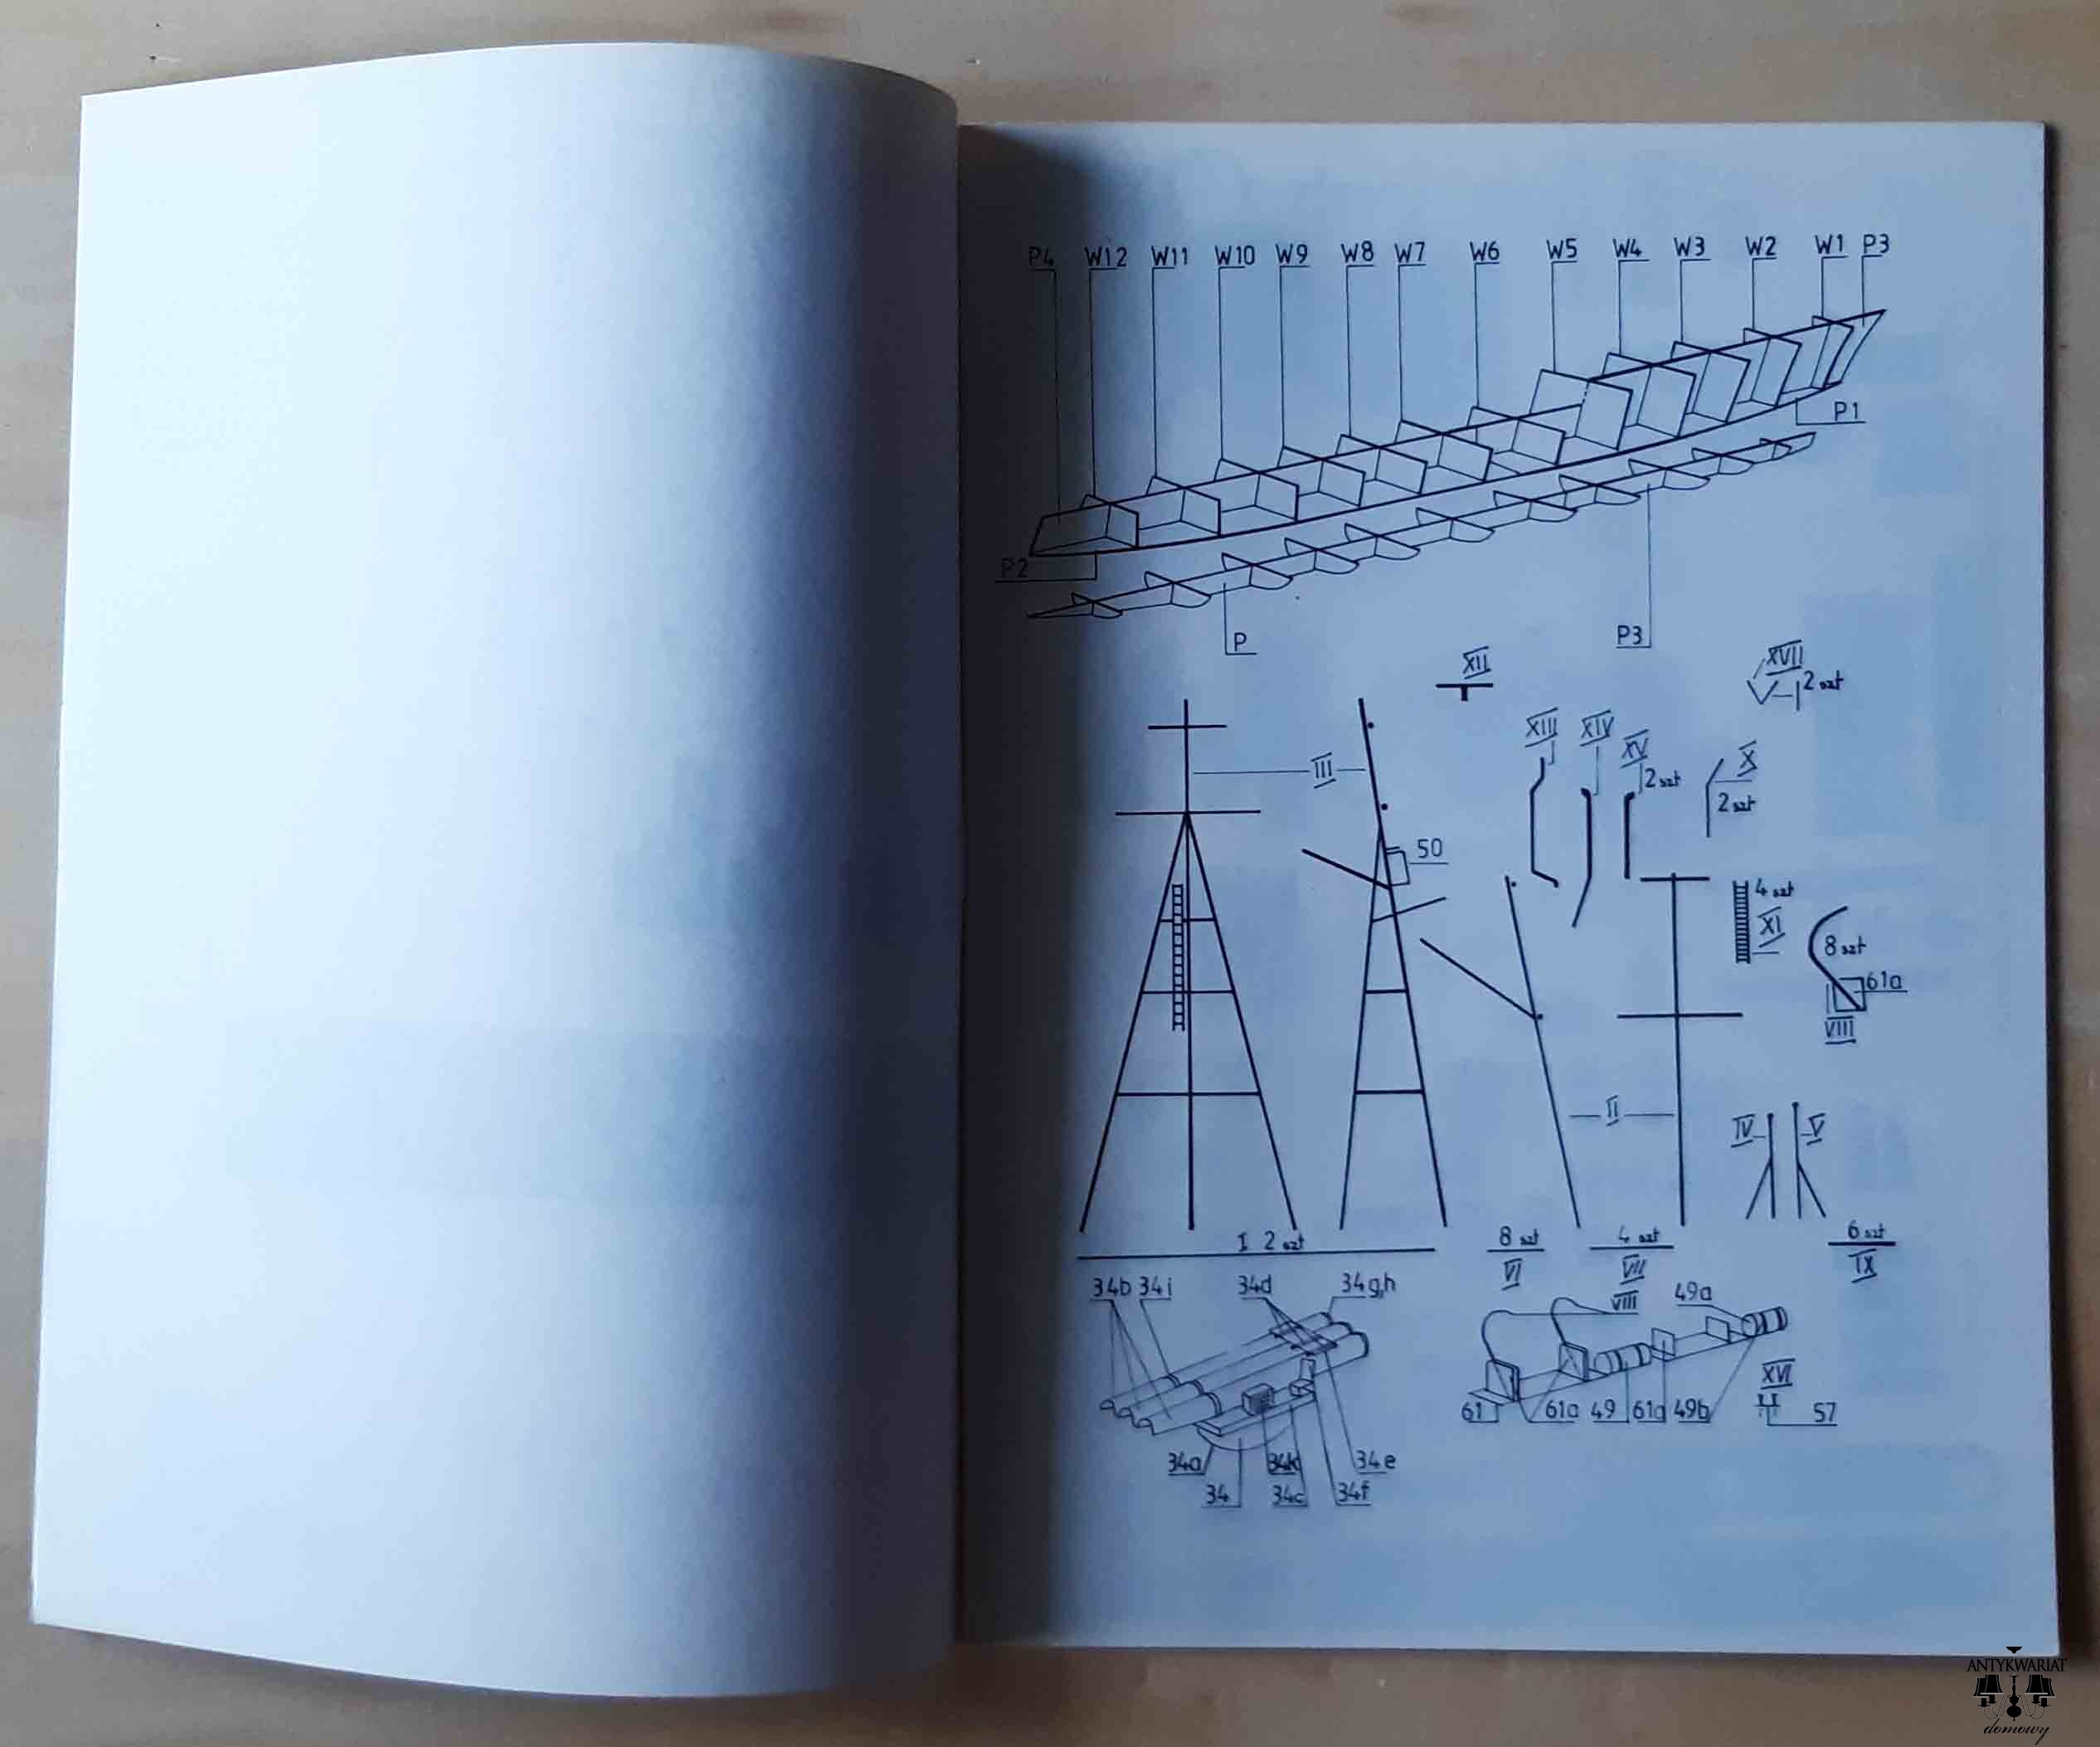 P4 W12 W11 W10 W9 W8 W7 W6 W5 W4 W3 W2 W1 P3
P1
P2
P
P3
XII
XVII
2 szt
XIII
XIV
XV
2 szt
X
2 szt
III
50
4 szt
XI
8 szt
61a
VIII
II
IV
V
I 2 szt
8 szt
VI
4 szt
VII
6 szt
IX
34b 34i 34d 34g,h
VIII
49a
XVI
61 61a 49 61a 49b 57
34a 34k 34e
34 34c 34f
ANTYKWARIAT
domowy